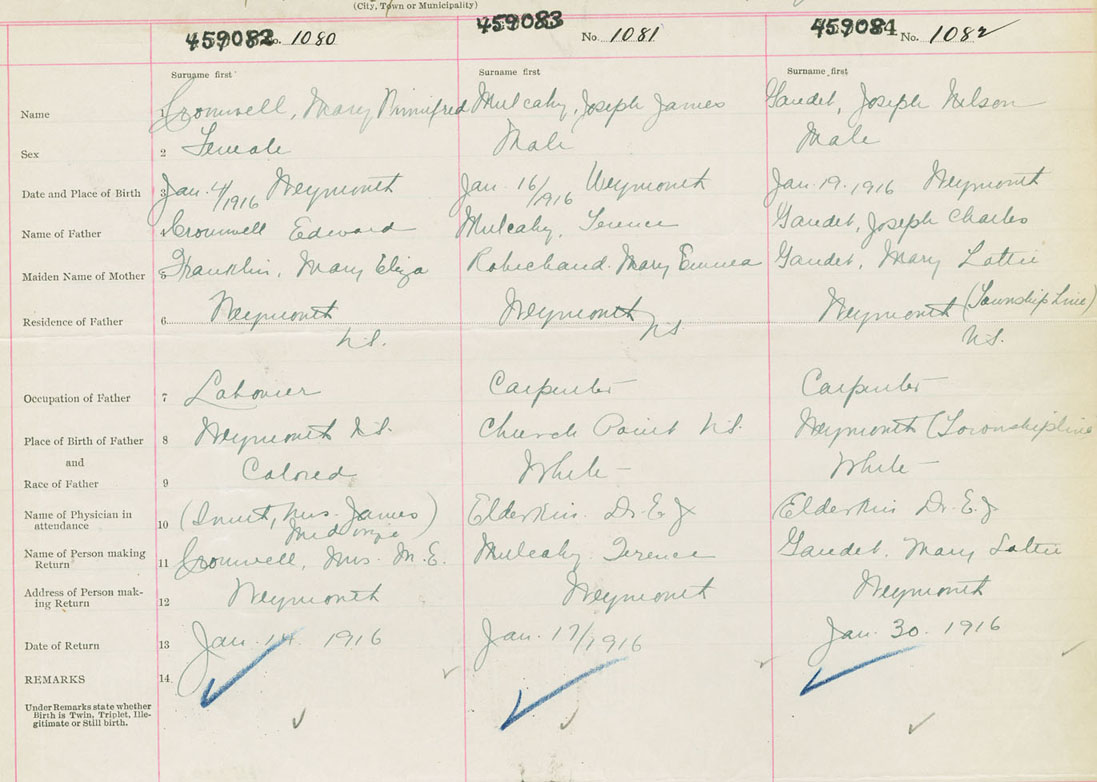 (City, Town or Municipality)
459082 No. 1080 459083 No. 1081 459084 No. 1082
Surname first Surname first Surname first
Name 1 Cromwell, Mary Winnifred Mulcahy, Joseph James Gaudet, Joseph Nelson
Sex 2 Female Male Male
Date and Place of Birth 3 Jan. 4/1916 Weymouth Jan. 16/1916 Weymouth Jan. 19. 1916 Weymouth
Name of Father 4 Cromwell Edward Mulcahy, Terence Gaudet, Joseph Charles
Maiden Name of Mother 5 Franklin, Mary Eliza Robichaud. Mary Emma Gaudet, Mary Lottie
Residence of Father 6 Weymouth N.S. Weymouth N.S. Weymouth (Township Line) N.S.
Occupation of Father 7 Labourer Carpenter Carpenter
Place of Birth of Father 8 Weymouth N.S. Church Point N.S. Weymouth (Township line
and
Race of Father 9 Colored White White
Name of Physician in
attendance 10 Mrs. James) Midwife Elderkin. Dr. E. J Elderkin Dr. E. J.
Name of Person making
Return 11 Cromwell, Mrs. M. E. Mulcahy. Terence Gaudet, Mary Lottie
Address of Person mak-
ing Return 12 Weymouth Weymouth Weymouth
Date of Return 13 Jan. 1916 Jan. 17/1916 Jan. 30. 1916
REMARKS 14
Under Remarks state whether
Birth is Twin, Triplet, Ille-
gitimate or Still birth.